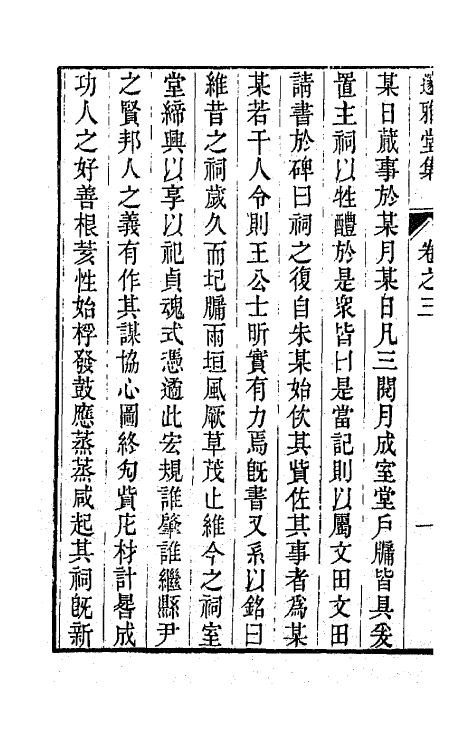 邃雅堂集 卷之三 一
某日蕆事於某月某日凡三閱月成室堂戶牖皆具爰
置主祠以牲醴於是衆皆曰是當記則以屬文田文田
請書於碑曰祠之復自朱某始佽其貲佐其事者爲某
某若干人令則王公士昕實有力焉旣書又系以銘曰
維昔之祠歲久而圮牖雨垣風厥草茂止維今之祠室
堂締興以享以祀貞魂式憑遹此宏規誰肇誰繼縣尹
之賢邦人之義有作其謀協心圖終匄貲庀材計晷成
功人之好善根荄性始桴發鼓應蒸蒸咸起其祠旣新